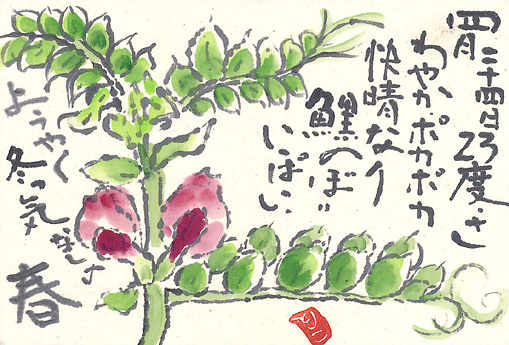 四月二十四日23度さ
わやかポカポカ
快晴なり
鯉のぼり
いっぱい
ようやく
冬の気なしよ
春